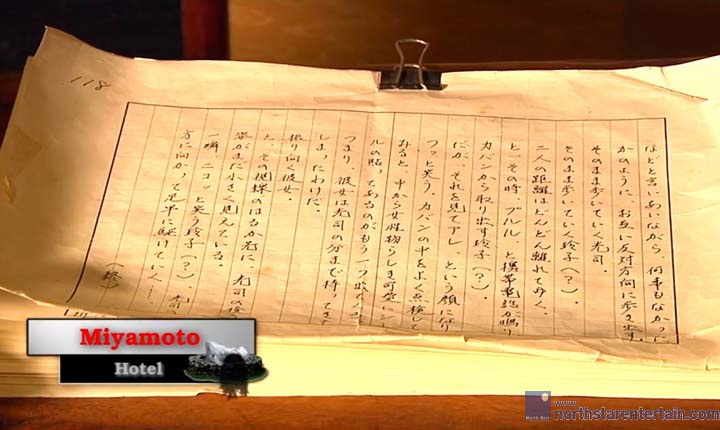 118
などと言いあいながら、何事もなかった
かのように、お互い反対方向に歩き出す。
そのまま歩いていく光司。
そのまま歩いていく玲子(?)。
二人の距離はどんどん離れてゆく。
と、その時、プルル、と携帯電話が鳴り
カバンから取り出す玲子(?)。
だが、それを見てアレ、という顔になり
フッと笑う。カバンの中をよく点検して
みると、中から女性物らしき可愛いシー
ルの貼ってあるのがもう一つ出てき
つまり、彼女は光司の分まで持ってき
しまったわけだ。
振り向く彼女。
と、その視線のはるか先に、光司の後
姿がまだ小さく見えている。
一瞬、ニコッと笑う玲子(?)、光司の
方に向かって足早に駆けていく…。
(終)
Miyamoto
Hotel
North Star
northstarentertain.com